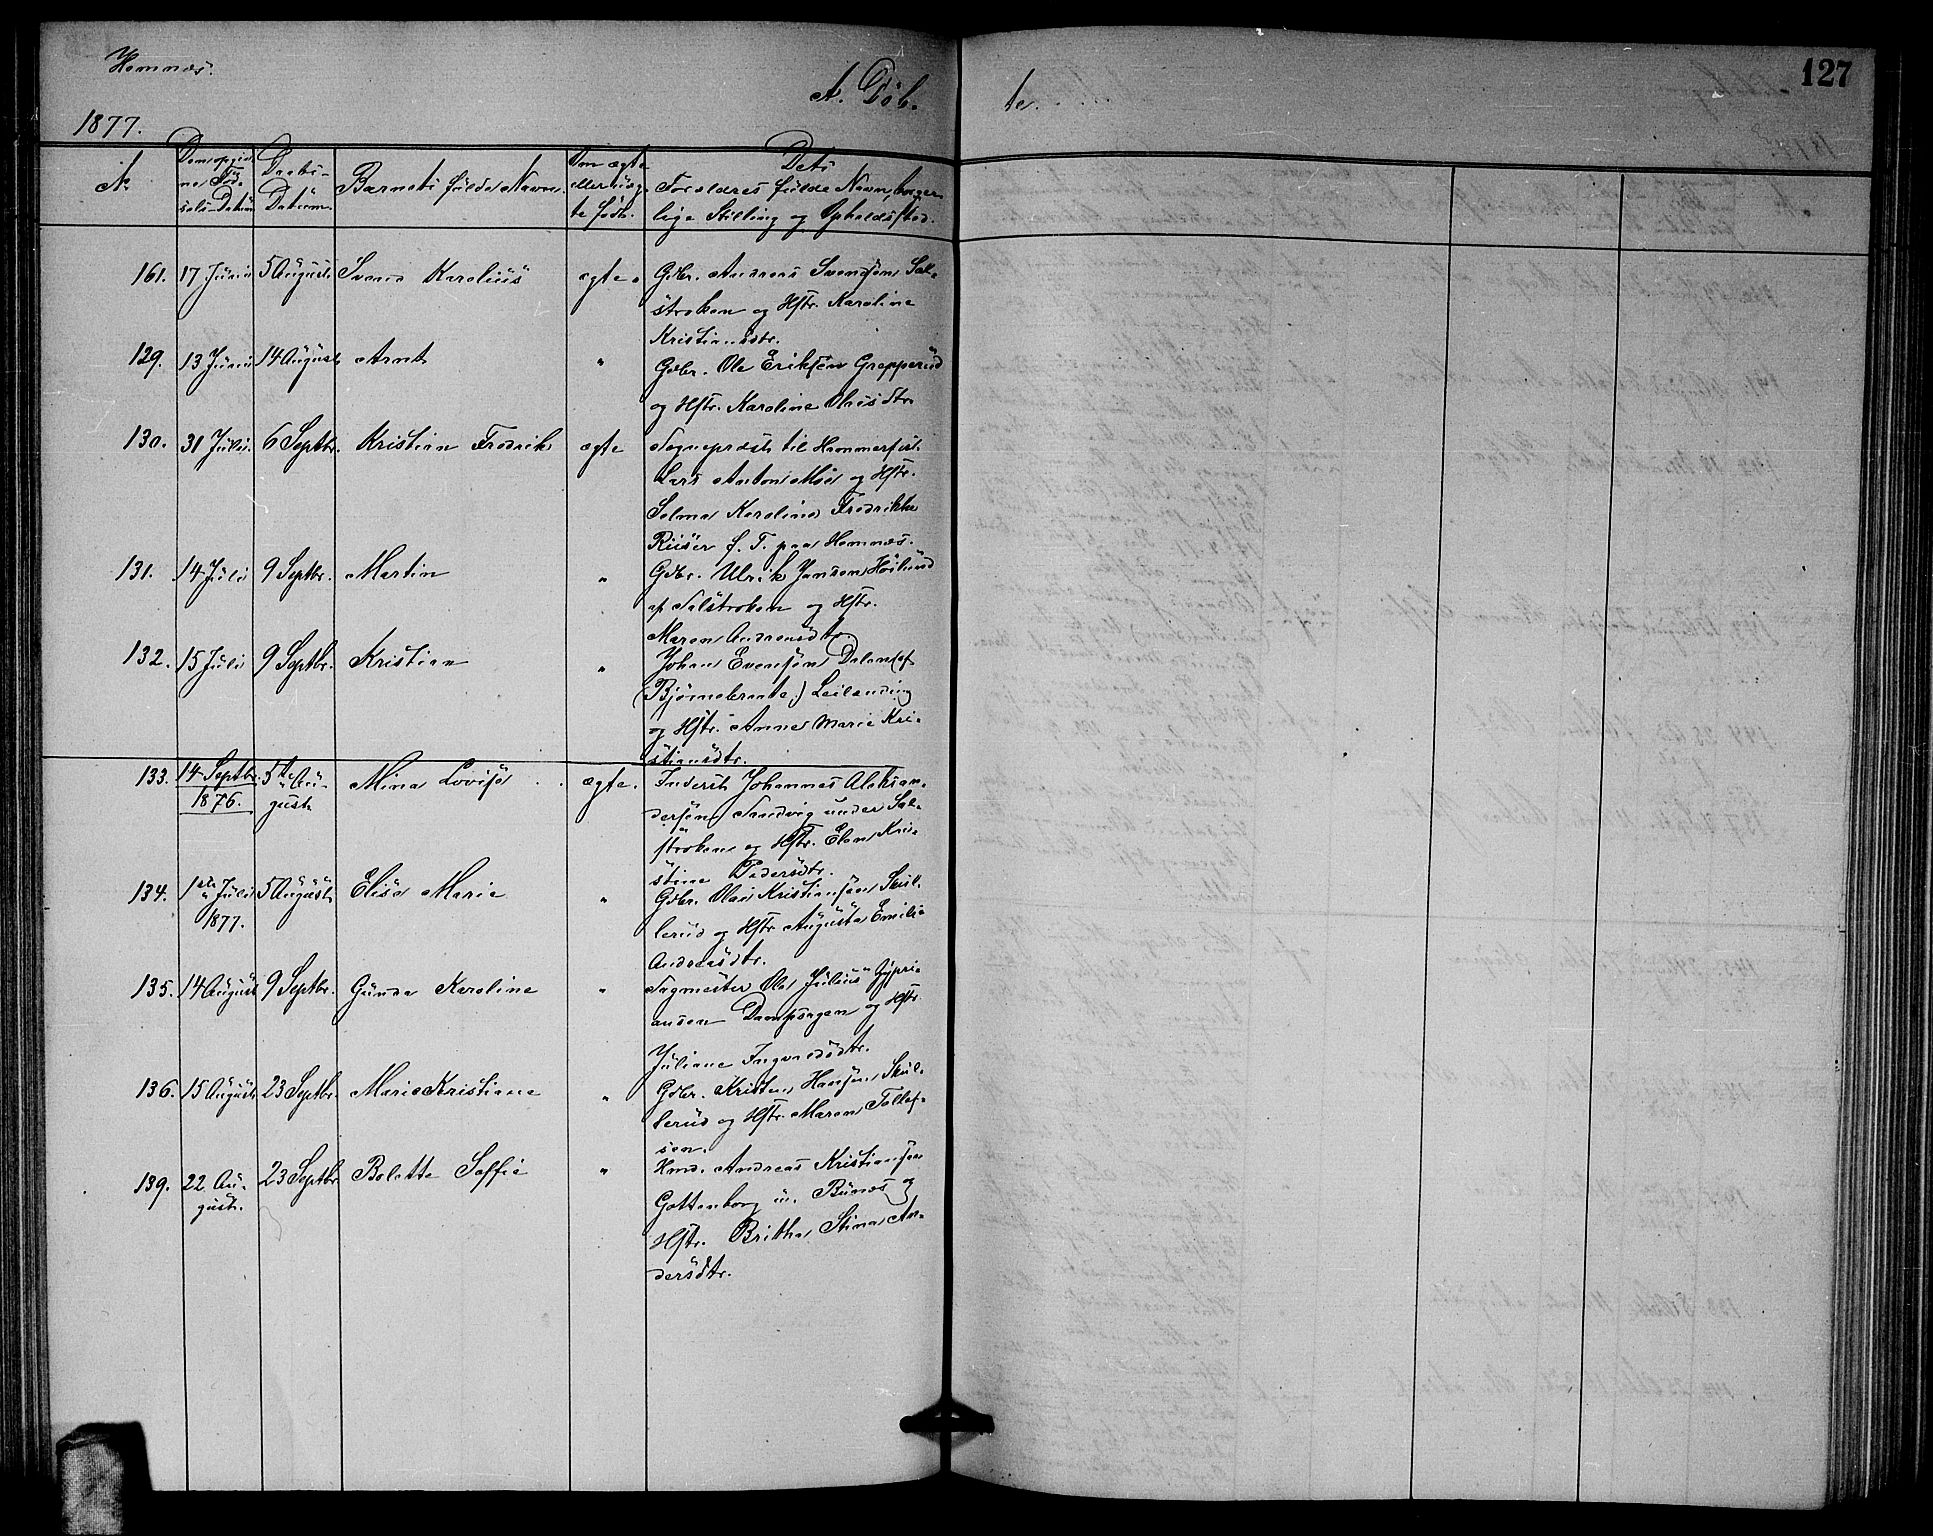 Hemnæs.
A. Døb-
te.
127
1877.
№
Den opgiv-
ne Fød-
sels-Datum
Daabs-
Datum.
Barnets fulde Navn.
Om ægte
eller uæg-
te født.
Dets
Forældres fulde Navn, borger-
lige Stilling og Opholdssted.
161. 17 Juni 5 August. Svend Karolius ægte. Gdbr. Andreas Svendsen Sal-
stroken og Hstr. Karoline
Kristiansdtr.
129. 13 Juni 14 August Arnt " Gdbr. Ole Eriksen Grepperud
og Hstr. Karoline Olausdtr.
130. 31 Juli. 6 Septbr. Kristian Fredrik ægte Sogneprest til Hammerfest
Lars Anton Moe og Hstr.
Selma Karoline Fredrikke
Riiser f. T. paa Hemnæs.
131. 14 Juli 9 Septbr. Martin " Gdbr. Ulrik Jansen Høilund
af Salstroken og Hstr.
Maren Andreasdtr.
132. 15 Juli 9 Septbr. Kristian " Johan Evensen Dalen (af
Bjørnebraate) Leilænding
og Hstr. Anne Marie Kri-
stiansdtr.
133. 14 Septbr. 5te Au- Mina Lovise ægte. Inderst Johannes Aleksan-
1876. gust dersen Sandvig under Sal-
stroken og Hstr. Elen Kri-
stine Pedersdtr.
134. 1ste Juli 5 August Elise Marie " Gdbr. Olai Kristiansen Skul-
1877. lerud og Hstr. Augusta Emilie
Andreasdtr.
135. 14 August 9 Septbr. Gunda Karoline " Sagmester Ole Julius Gypri-
ansen Dampsagen og Hstr.
Juliane Ingvaldsdtr.
136. 15 August 23 Septbr. Marie Kristiane " Gdbr. Kristen Hansen Skul-
lerud og Hstr. Maren Tollef-
sen.
139. 22 Au- 23 Septbr. Bolette Soffie " Hmd. Andreas Kristiansen
gust. Gottenborg u. Bunæs og
Hstr. Britha Stina An-
dersdtr.